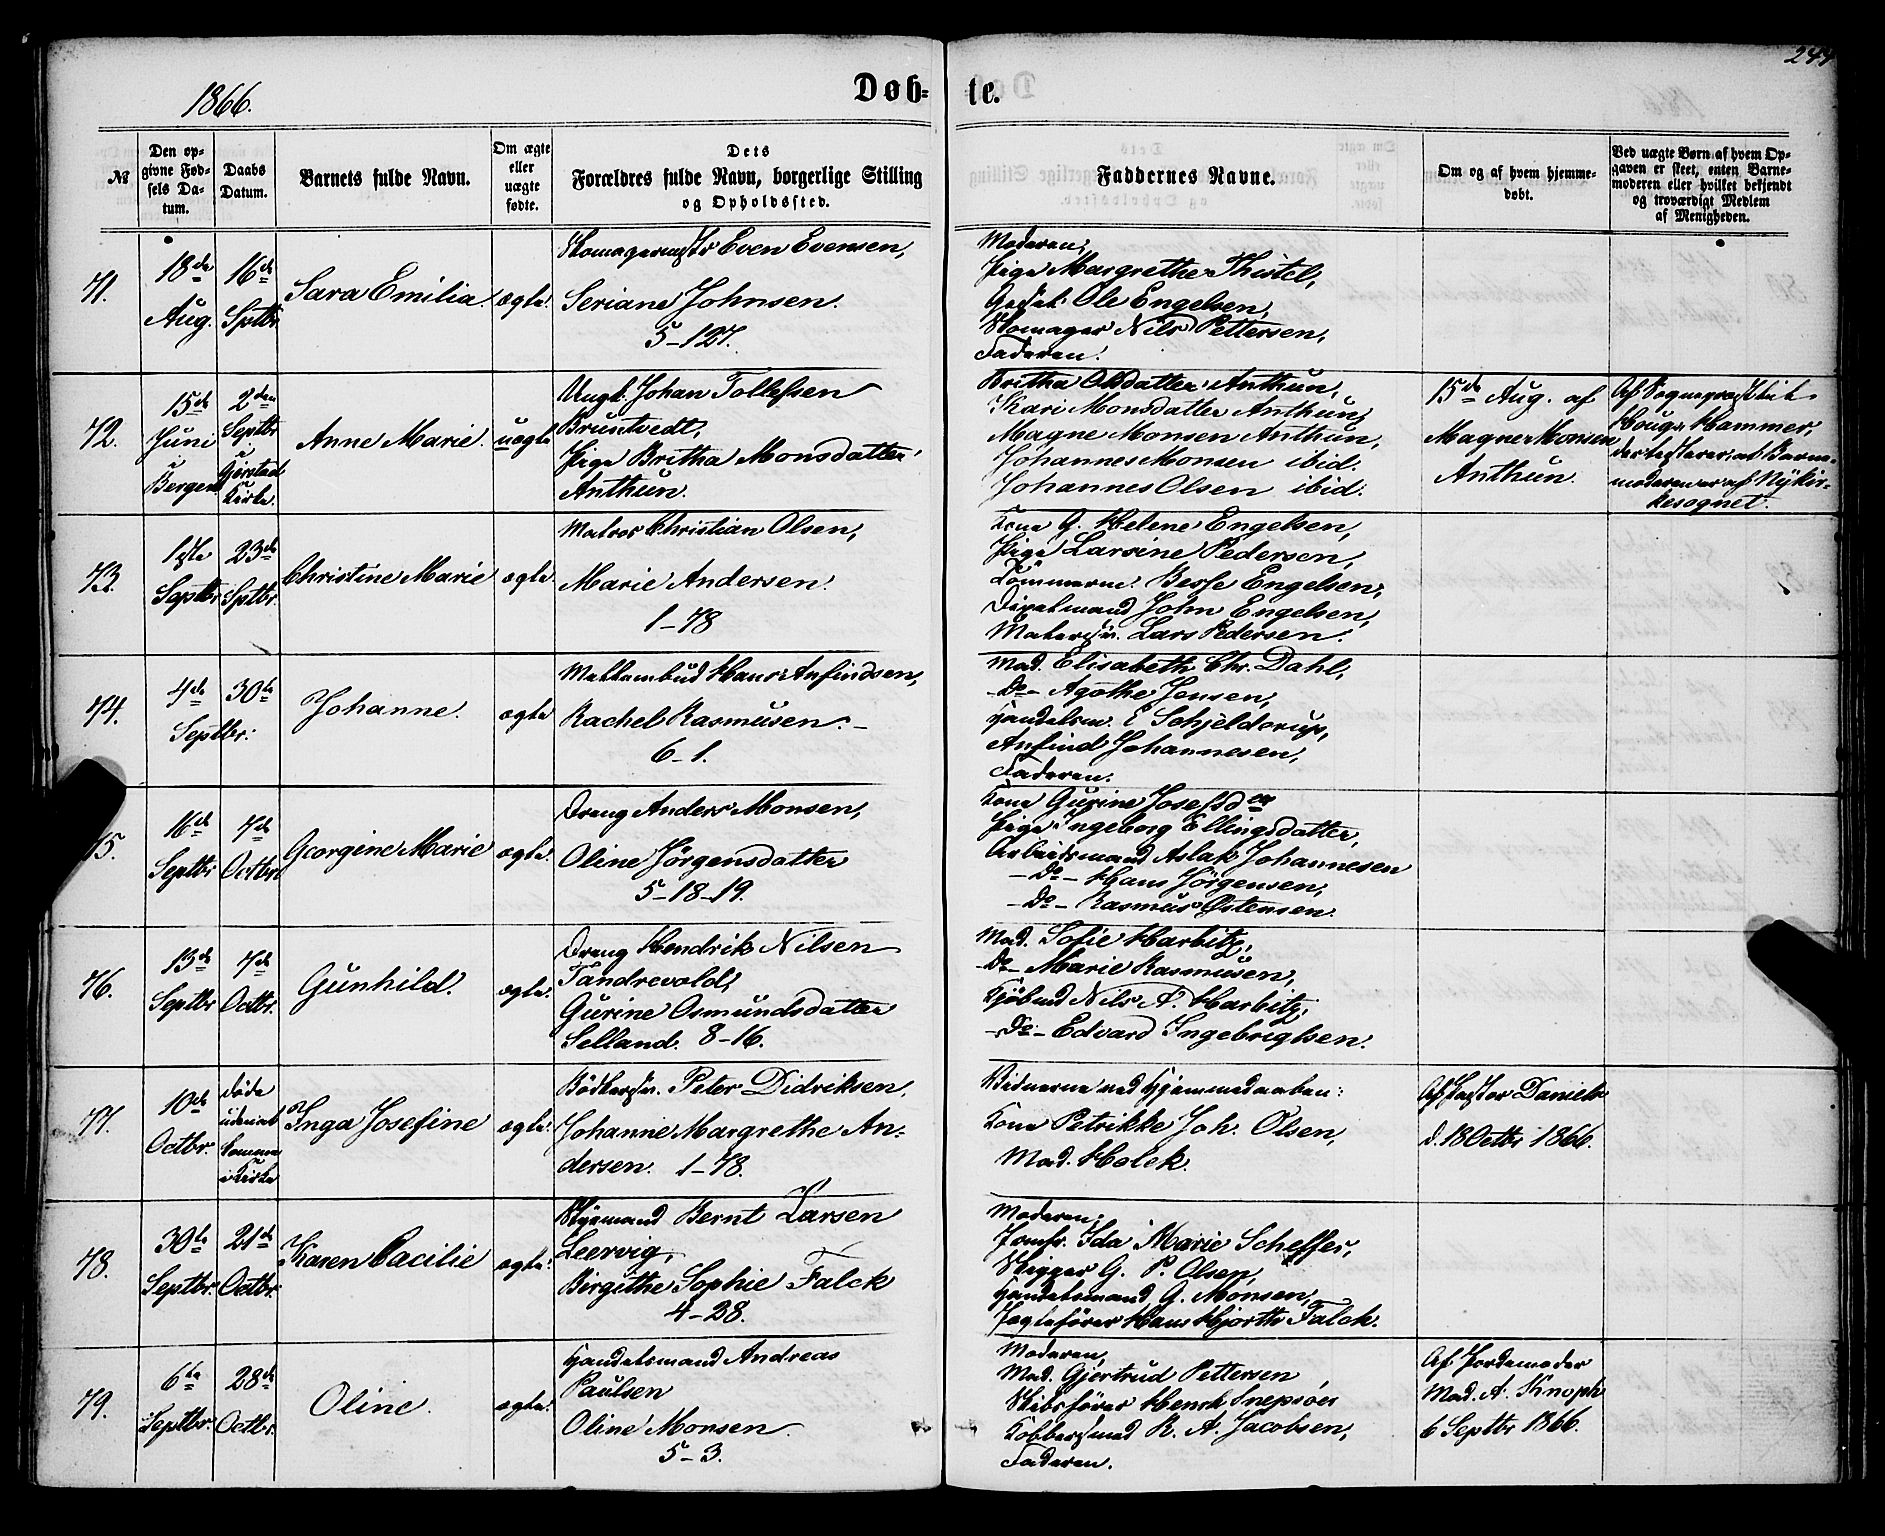 244
1866.
Døb-
te.
№
Den op-
givne Fød-
sels Da-
tum.
Daabs
Datum.
Barnets fulde Navn.
Om ægte
eller
uægte
fødte.
Dets
Forældres fulde Navn, borgerlige Stilling
og Opholdssted.
Faddernes Navne.
Om og af hvem hjemme-
døbt.
Ved uægte Børn af hvem Op-
gaven er skeet, enten Barne-
moderen eller hvilket bekjendt
og troværdigt Medlem
af Menigheden.
71.
18de
Aug.
16de
Sptbr
Sara Emilia.
ægte.
Even Evensen,
Seriane Johnsen.
5-127.
Moderen,
Pige Margrethe Thistel,
Ole Engelsen,
Skomager Nils Pettersen,
Faderen.
72.
15de
Juni
i
Bergen
2den
Septbr
i
Gjerstad
Kirke.
Anne Marie.
uægte
Ungk. Johan Tollefsen
Bruntvedt,
Pige Britha Monsdatter
Anthun.
Britha Olsdatter Anthun,
Kari Monsdatter Anthun,
Magne Monsen Anthun,
Johannes Monsen ibid.
Johannes Olsen ibid.
15de Aug. af
Magne Monsen
Anthun.
Af Sognepræst til
Houg Hammer,
der attesterer, at Barne-
moderen er af Nykir-
kesognet.
73.
1ste
Septbr
23de
Sptbr
Christine Marie
ægte
Matros Christian Olsen,
Marie Andersen.
1-78
Kone G. Helene Engelsen,
Pige Larsine Pedersen,
Tømmerm. Besse Engelsen,
John Engelsen,
Lars Pedersen.
74.
4de
Septbr:
30te
Johanne.
ægte
Hans Anfindsen,
Rachel Rasmusen.-
6-1.
Mad. Elisabeth Chr. Dahl,
-Do- Agathe Jensen,
Handelsm. E Schjelderup,
Anfind Johannesen,
Faderen.
75.
16de
Septbr
7de
Octbr.
Georgine Marie
ægte.
Dreng Anders Monsen,
Oline Jörgensdatter
5-18-19.
Kone Gurine Josefsder
Pige Ingeborg Ellingsdatter,
Arbeidsmand Aslak Johannesen
-Do- Hans Jörgensen,
-Do- Rasmus Østensen.
76.
13de
Septbr
7de
Octbr.
Gunhild.
ægte.
Dreng Hendrik Nilsen
Tandrevold,
Gurine Osmundsdatter
Selland. 8-16.
Mad. Sofie Harbitz,
-Do- Marie Rasmusen,
Kjöbmd Nils A. Harbitz,
-Do- Edvard Ingebrigtsen.
77.
10de
Octbr.
døde
uden at
komme
i Kirke
Inga Josefine
ægte.
Bödkersv. Peter Didriksen,
Johanne Margrethe An-
dersen. 1-78.
Vidnerne ved Hjemmedaaben:
Kone Petrikke Joh. Olsen,
Mad. Holck.
Af Pastor Daniels
d. 18 Octbr 1866.
78.
30te
Septbr.
21de
Octbr.
Karen Cacilie
ægte.
Styrmand Bernt Larsen
Leervig,
Birgithe Sophie Falck
4-28.
Moderen,
Jomfr. Ida Marie Scheffer,
Skipper G. P. Olsen,
Handelsmand G. Monsen,
Jagtefører Hans Hjorth Falck.
79.
6te
Septbr.
28de
Octbr.
Oline.
ægte.
Handelsmand Andreas
Paulsen
Oline Monsen.
5-3.
Moderen,
Mad. Gjertrud Pettersen
Skibsfører Henrik
R. A. Jacobsen,
Faderen.
Af Jordemoder
Mad. A. Knoph
6 Septbr 1866.